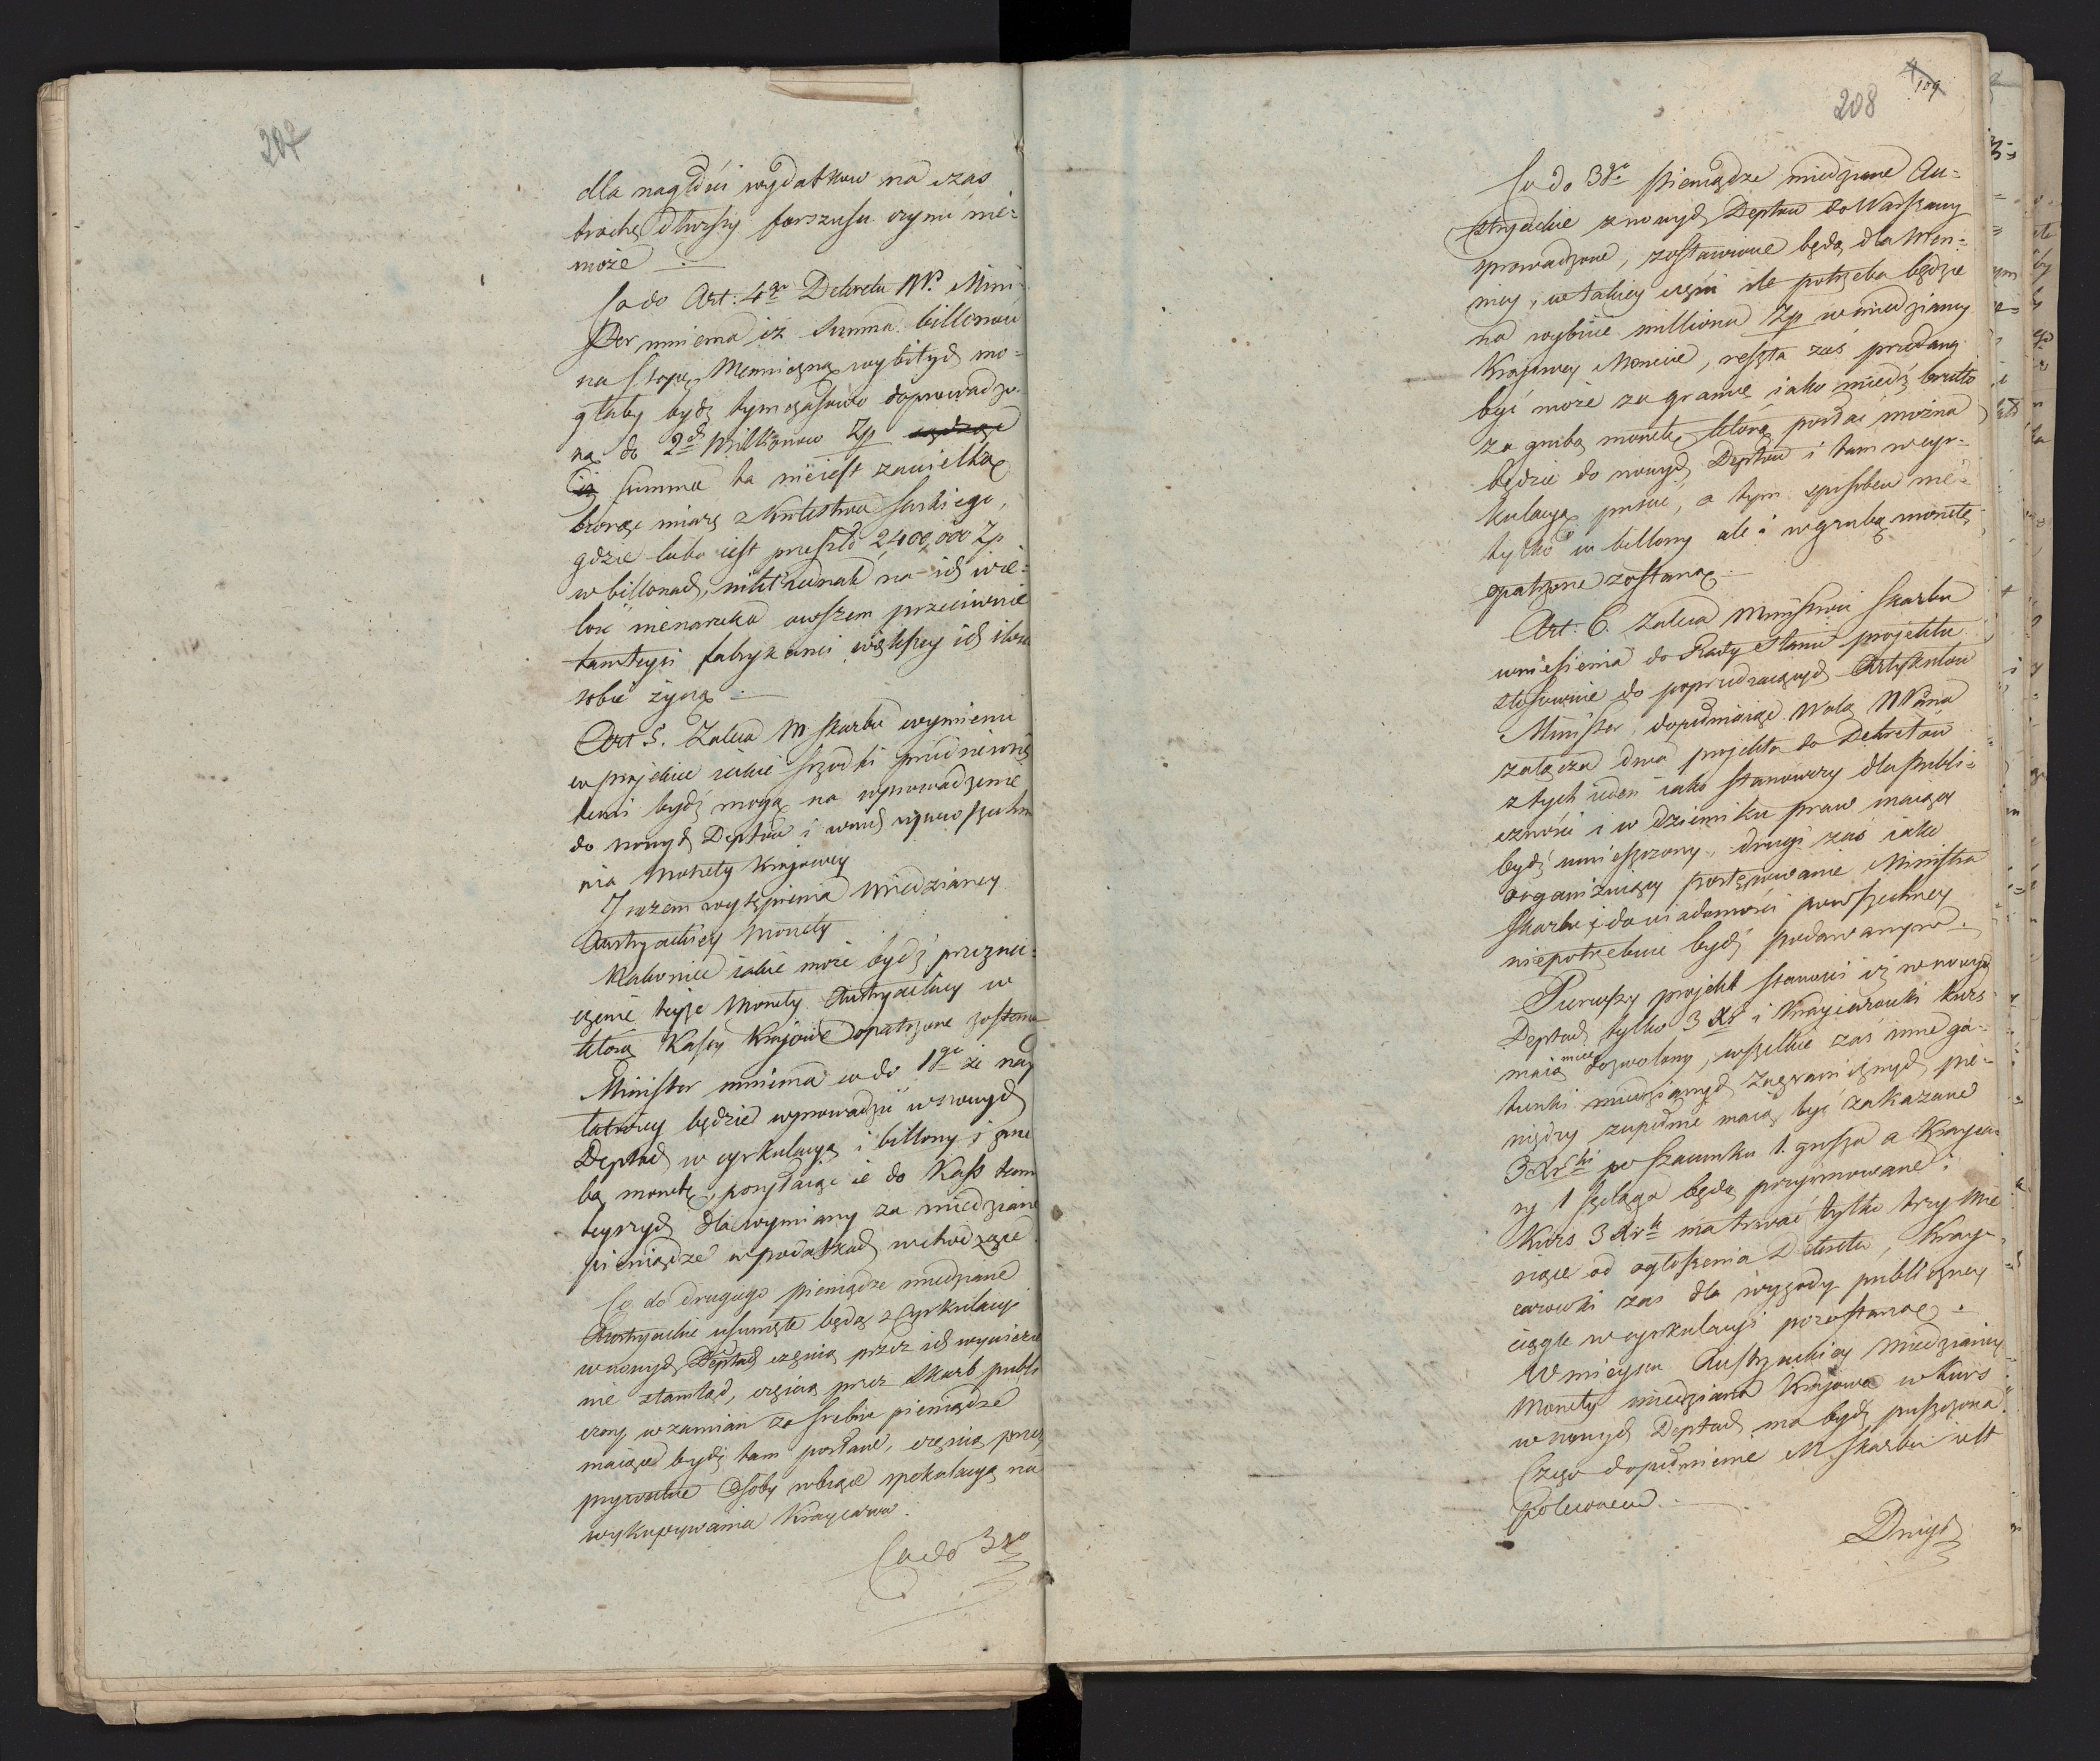 207
dla nagłości wydatkow na czas
trochę dłuższy forszusu czynić nie=
może
Co do Art: 4go Dekretu NP. Mini=
ster mniema iż Summa billonów
na Stopę Menniczną wybitych mo=
głaby bydź tymczasowo doprowadzo=
na do 2ch Millionow Zp
iż summa ta nie iest zawielką
biorąc miarę z Krolestwa Saskiego,
gdzie lubo iest przeszło 2,400,000 Zp
w billonach, nikt iednak na ich wie=
lość nienarzeka owszem przeciwnie
tamteysi fabrykanci większey ich ilości
sobie życzą
Art 5. Zaleca M Skarbu wymienić
w projekcie iakie srzodki
temi bydź mogą na wprowadzenie
do nowych Deptow i w nich upowszechnie
nia Monety Krajowey
I razem wytępienia Miedzianey
Austryackiey Monety
Nakoniec iakie może bydź przezna=
czenie teyże Monety Austryackiey w
którą Kassy Krajowe opatrzone zostaną
Minister mniema co do 1go że nay
łatwiey będzie wprowadzić w nowych
Deptach w cyrkulacyą i billony i gru
bą monetę, posyłaiąc ie do Kass tam
teyszych dla wymiany za miedziane
pieniądze w podatkach wchodzące
Co do drugiego pieniądze miedziane
Austryackie usunięte będą z Cyrkulacyi
w nowych Deptach częscią przez ich wywiezie
nie ztamtąd, częscią przez Skarb publi
czny w zamian za srebrne pieniądze
maiące bydź tam posłane, częscią przez
prywatne Osoby robiące spekulacyą na
wykupywania Kraycarow.
Co do 3go
208
109
Co do 3go Pieniądze miedziane Au=
stryackie z nowych Deptow do Warszawy
sprowadzone, zostawione będą dla Men=
nicy, w takiey części ile potrzeba będzie
na wybicie milliona Zp w miedzianey
Krajowey Monecie, reszta zaś przedaną
być może za granicę iako miedź brutto
za grubą monetę którą posłać można
będzie do nowych Deptow i tam w cyr=
kulacyą puścić, a tym sposobem nie=
tylko w billony ale i w grubą monetę
opatrzone zostaną
Art: 6. Zaleca Ministrowi Skarbu
wniesienia do Rady Stanu projektu
stosownie do poprzedzaiących Artykułow
Minister dopełniaiąc Wolą NPana
załącza dwa projekta do Dekretow
z tych ieden iako stanowczy dla Publi=
czności i w dzienniku praw maiący
bydź umieszczony, drugi zaś iako
organizuiący postępowanie Ministra
Skarbu i do wiadomości powszechney
niepotrzebnie bydź podawanym.
Pierwszy projekt stanowi iż w nowych
Deptach tylko 3 Xr i Kraycarowki kurs
maią mieć dozwolony, wszelkie zaś inne ga=
tunki miedzianych zagranicznych pie=
niędzy zupełnie maią być zakazane
3 Xrki po szacunku 1. grosza a Krayca=
ry 1 szeląga będą przyimowane:
Kurs 3 Xrk ma trwać tylko trzy Mie
siące od ogłoszenia Dekretu, Kray=
carowki zas dla wygody publiczney
ciągle w cyrkulacyi pozostaną.
W mieysce Austryackiey Miedzianey
Monety miedziana Krajowa w kurs
w nowych Deptach ma bydź puszczona.
Czego dopełnienie M. Skarbu iest
polecone.
Drugi